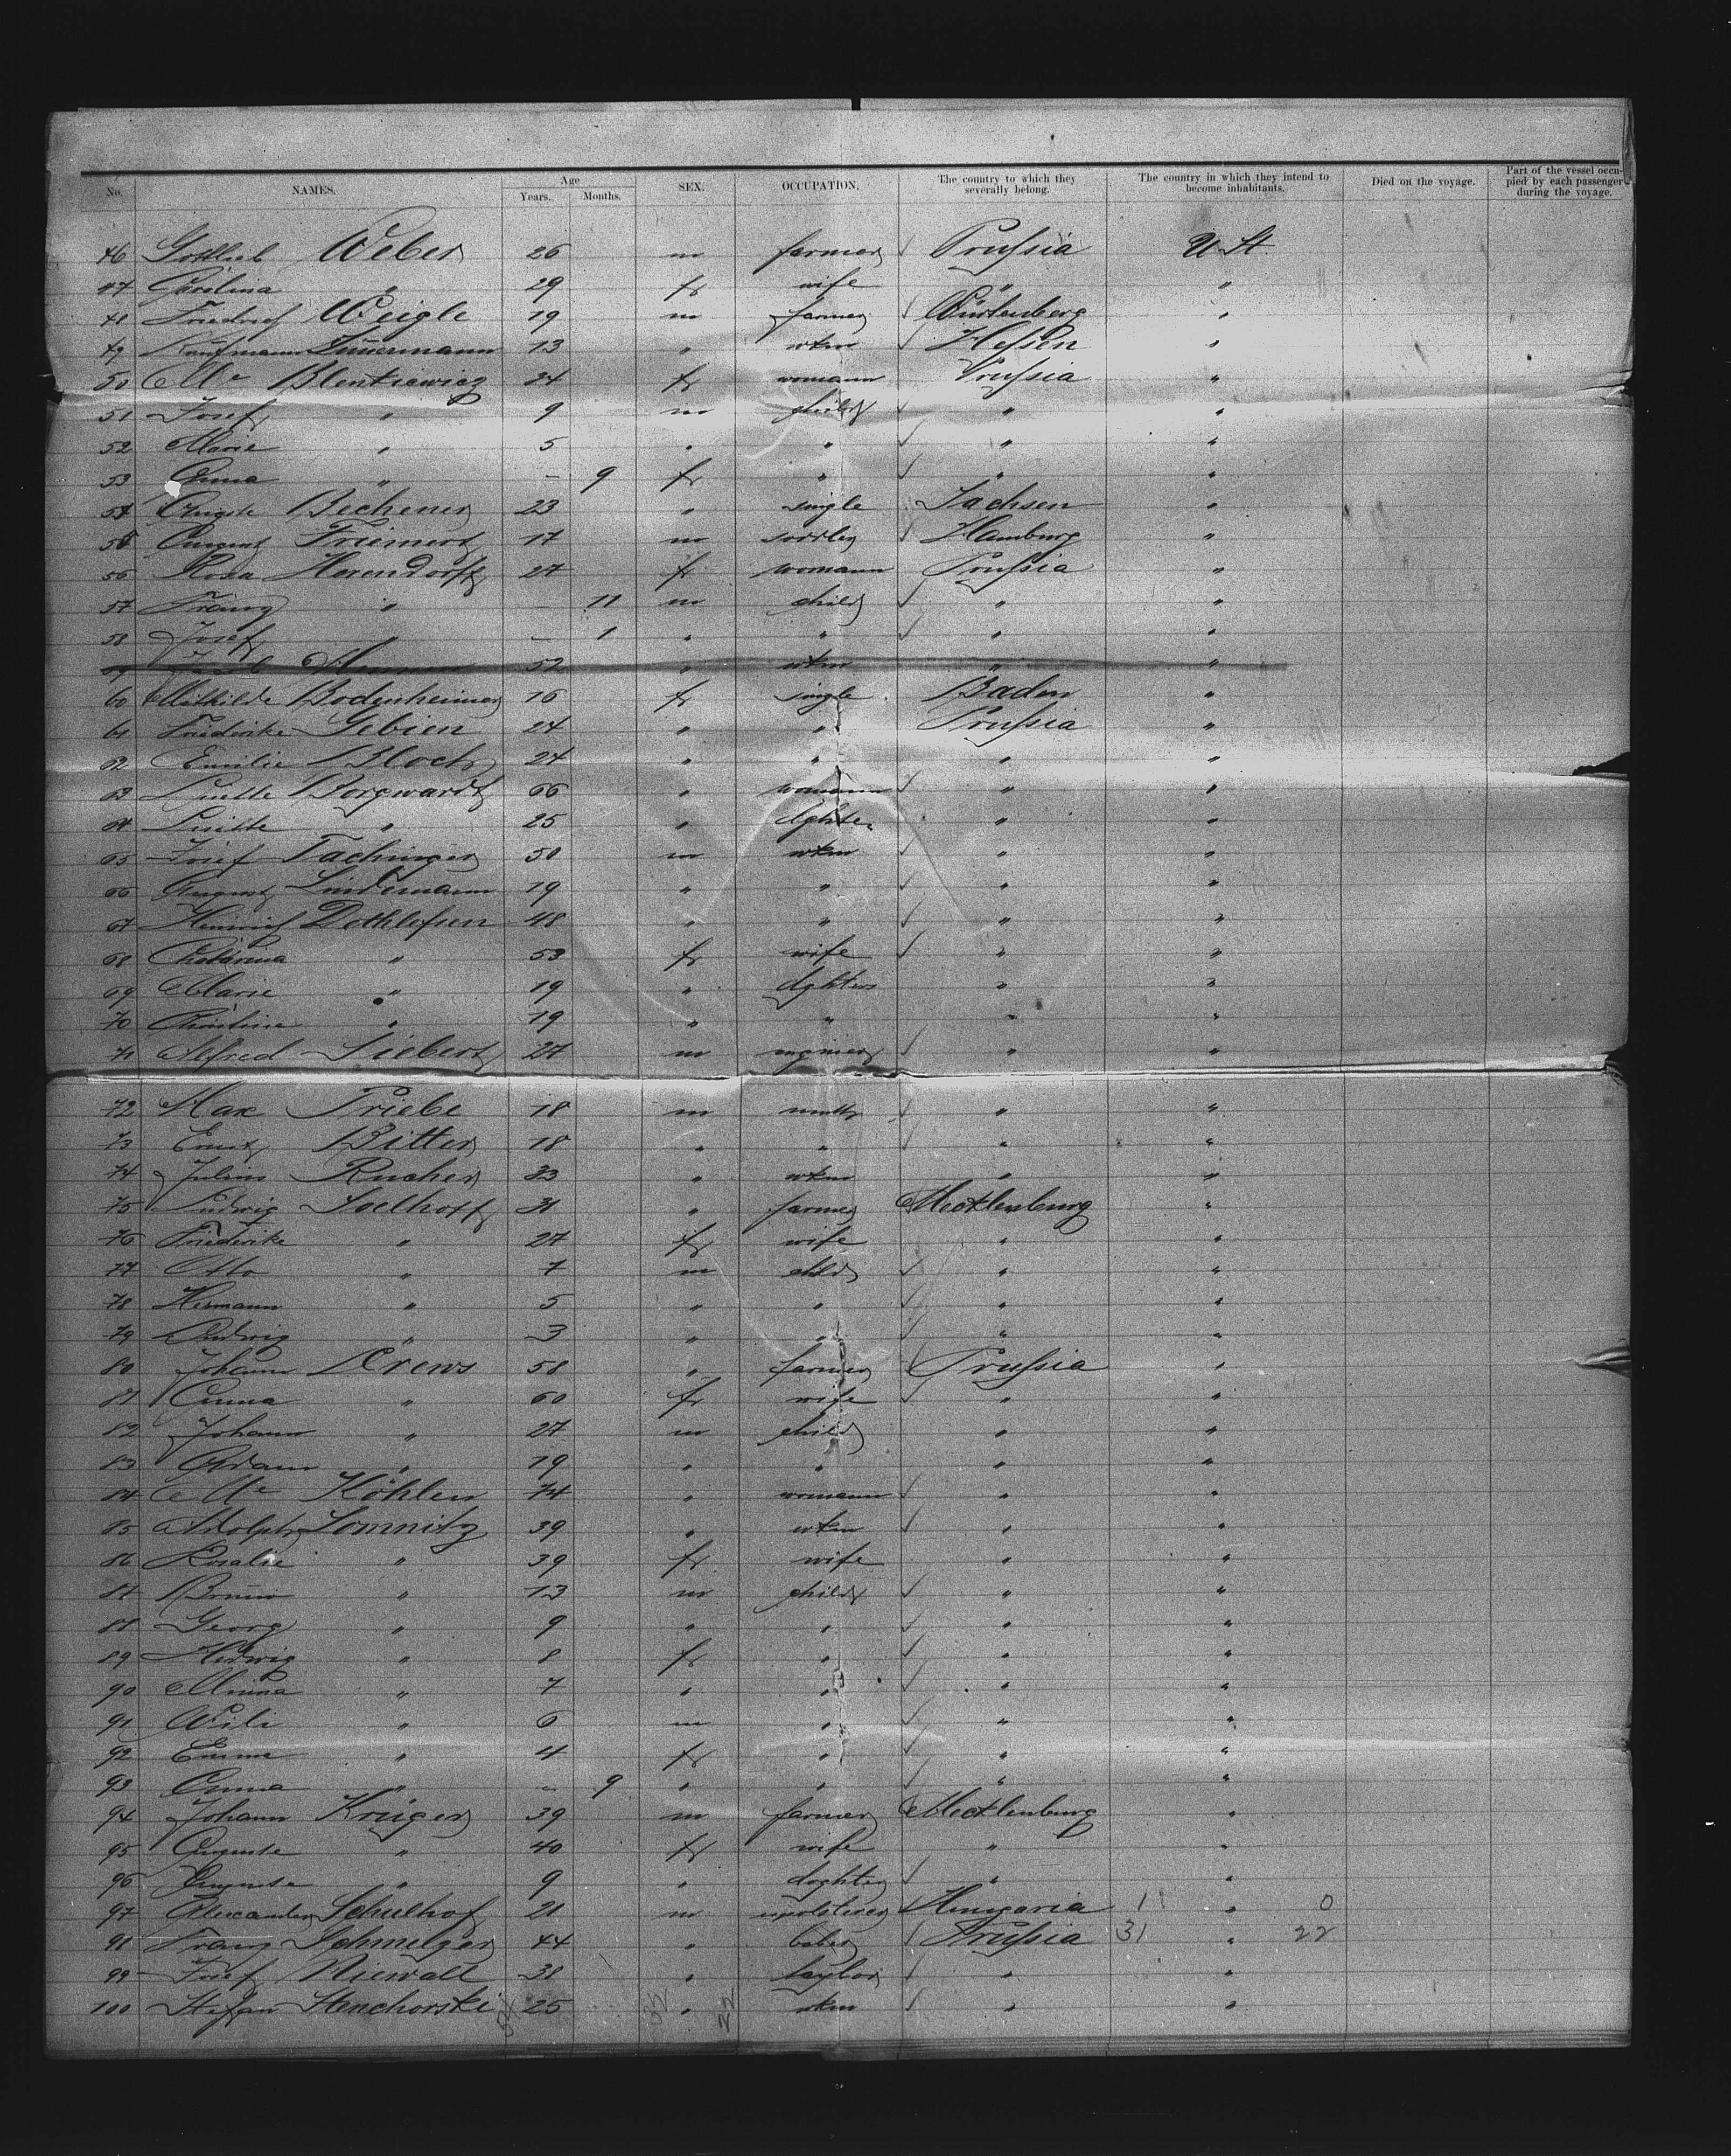 No. NAMES. Age Years. Months. SEX. OCCUPATION. The country to which they severally belong. The country in which they intend to become inhabitants. Died on the voyage. Part of the vessel occupied by each passenger during the voyage.
46 Gottlieb Weber 26 m farmer Prussia U St
47 Carolina " 29 f wife " "
48 Friedrich Weigle 19 m farmer Würtenberg "
49 Kaufmann 13 " wkm Hessen "
50 Me Blenkiewicz 34 f womann Prussia "
51 Josef " 9 m child " "
52 Marie " 5 " " " "
53 Anna " - 9 f " " "
54 Auguste Bechener 23 " single Sachsen "
55 August Friemert 17 m Hamburg "
56 Rosa Herendorff 27 f womann Prussia "
57 Franz " - 11 m child " "
58 Josef " - 1 " " " "
59 52 " wkm " "
60 Mathilde Bodenheimer 16 f single Baden "
61 Friederike Gebien 24 " " Prussia "
62 Emilie Bloch 24 " " " "
63 Borgwardt 66 " womann " "
64 " 25 " dghter " "
65 Josef Tachinger 50 m wkm " "
66 August Lindemann 19 " " " "
67 Heinrich Dethlefsen 48 " " " "
68 Chatarina " 53 f wife " "
69 Marie " 19 " dghters " "
70 Christine " 19 " " " "
71 Alfred Siebert 27 m enginer " "
72 Max Priebe 18 m " "
73 Ernst Bitter 18 " " " "
74 Julius Rucher 33 " wkm " "
75 Ludwig Soelhoff 31 " farmer Mecklenburg "
76 Friederike " 27 f wife " "
77 Otto " 7 m child " "
78 Hermann " 5 " " " "
79 Ludwig " 3 " " " "
80 Johann Drews 58 " farmer Prussia "
81 Anna " 60 f wife " "
82 Johann " 27 m child " "
83 Adam " 19 " " " "
84 Me Köhlen 74 " womann " "
85 Adolph Lomnitz 39 " wkm " "
86 Rosalie " 39 f wife " "
87 Bruno " 13 m child " "
88 Georg " 9 " " " "
89 Hedwig " 8 f " " "
90 Minna " 7 " " " "
91 Wili " 6 m " " "
92 Emma " 4 f " " "
93 Anna " - 9 " " " "
94 Johann Krüger 39 m farmer Mecklenburg "
95 Auguste " 40 f wife " "
96 Auguste " 9 " doghter " "
97 Alexander Schulhof 21 m upolsterer Hungaria 1 " 0
98 Franz Schmelzer 44 " Prussia 31 " 22
99 Josef Niewall 38 " taylor " "
100 Stefan Stenchorski 25 " wkm " "